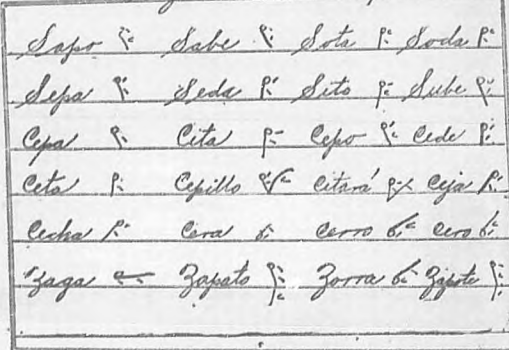 Sapo Sabe Sota Soda
Sepa Seda Sito Sube
Cepa Cita Cepo Cede
Ceta Cepillo Citará Ceja
Cecha Cera Cerro Cero
Zaga Zapato Zorra Zapote